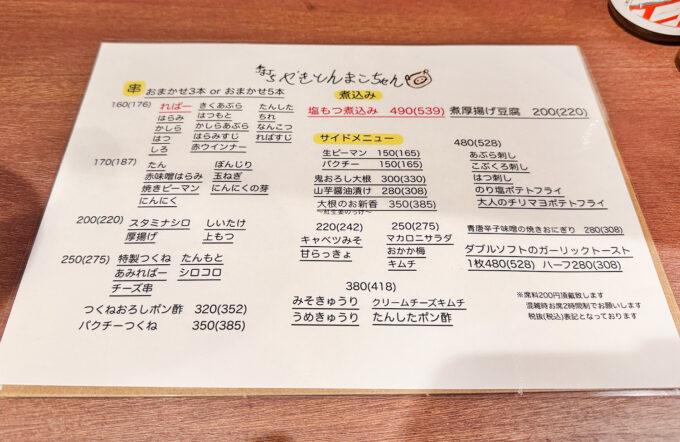 やきとんまこちゃん
串 おまかせ3本 or おまかせ5本
160(176) ればー きくあぶら たんした
はらみ はつもと ちれ
かしら かしらあぶら なんこつ
はつ はらみすじ ればすじ
しろ 赤ウインナー
170(187) たん ぼんじり
赤味噌はらみ 玉ねぎ
焼きピーマン にんにくの芽
にんにく
200(220) スタミナシロ しいたけ
厚揚げ 上もつ
250(275) 特製つくね たんもと
あみればー シロコロ
チーズ串
つくねおろしポン酢 320(352)
パクチーつくね 350(385)
煮込み
塩もつ煮込み 490(539) 煮厚揚げ豆腐 200(220)
サイドメニュー
生ピーマン 150(165)
パクチー 150(165)
鬼おろし大根 300(330)
山芋醤油漬け 280(308)
大根のお新香 350(385)
〜紅生姜のっけ〜
220(242)
キャベツみそ
甘らっきょ
250(275)
マカロニサラダ
おかか梅
キムチ
380(418)
みそきゅうり クリームチーズキムチ
うめきゅうり たんしたポン酢
480(528)
あぶら刺し
こぶくろ刺し
はつ刺し
のり塩ポテトフライ
大人のチリマヨポテトフライ
青唐辛子味噌の焼きおにぎり 280(308)
ダブルソフトのガーリックトースト
1枚480(528) ハーフ280(308)
※席料200円頂戴致します
混雑時お席2時間制でお願いします
税抜(税込)表記となっております